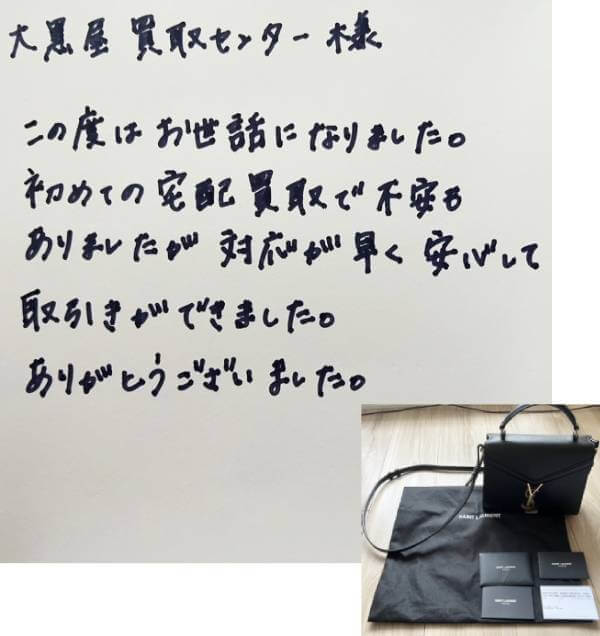 大黒屋 買取センター 様
この度は お世話に なりました。
初めての 宅配 買取で 不安も
ありましたが 対応が 早く 安心して
取引きができました。
ありがとうございました。
SAINT LAURENT
SAINT LAURENT
SAINT LAURENT
SAINT LAURENT